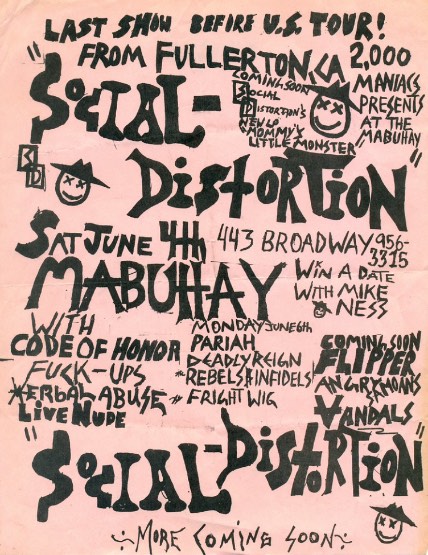 LAST SHOW BEFORE U.S. TOUR!
FROM FULLERTON, CA
2,000
MANIACS
PRESENTS
AT THE
MABUHAY
COMING SOON
SOCIAL
DISTORTION'S
NEW LP
"MOMMY'S
LITTLE MONSTER
"SOCIAL-
DISTORTION"
SD
SAT JUNE 4th
443 BROADWAY 956-
3315
MABUHAY
WIN A DATE
WITH MIKE
NESS
WITH
CODE OF HONOR
FUCK-UPS
VERBAL ABUSE
LIVE NUDE
MONDAY JUNE 6th
PARIAH
DEADLY REIGN
*REBELS & INFIDELS
* FRIGHT WIG
COMING SOON
FLIPPER
ANGRY SAMOANS
VANDALS
"SOCIAL-DISTORTION"
MORE COMING SOON